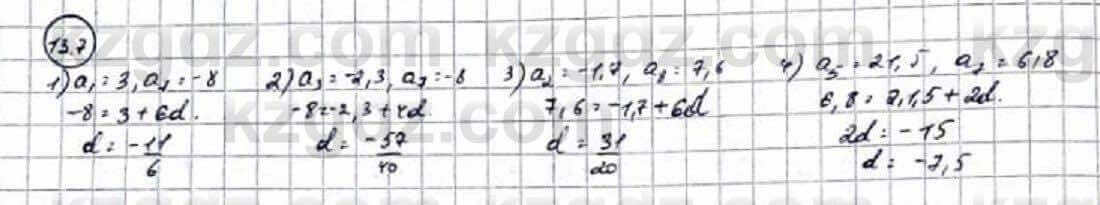 13.7
1) a₁ = 3, a₇ = -8
-8 = 3 + 6d.
d = -11/6
2) a₃ = -2,3, a₇ = -8
-8 = -2,3 + 4d.
d = -57/40
3) a₂ = -1,7, a₈ = 7,6
7,6 = -1,7 + 6d
d = 31/20
4) a₅ = 21,5, a₇ = 6,8
6,8 = 21,5 + 2d.
2d = -15
d = -7,5